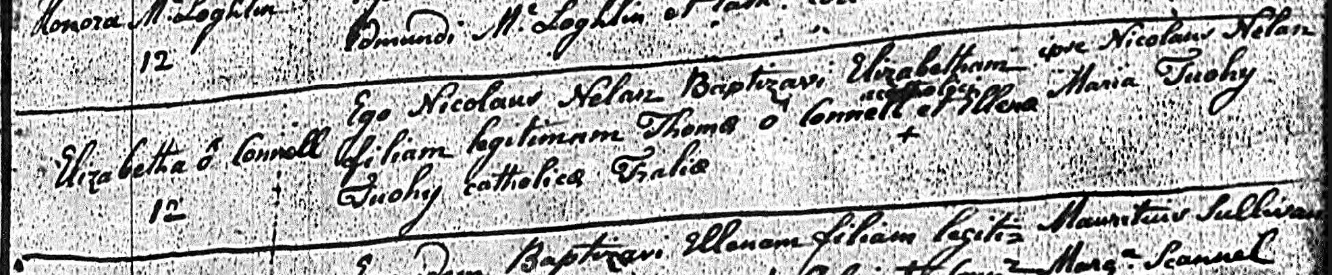 Honora Mc Loghlin
Edmundi Mc Loghlin et
12
Ego Nicolaus Nelan Baptizavi Elizabetham ipse Nicolaus Nelan
Elizabetha ó Connell filiam legitimam Thomæ ó Connell et Ellenæ Maria Tuohy
12 Tuohy catholicæ Traliæ
Baptizavi Ellenam filiam legitim Mauritius Sullivan
Margt Scannel